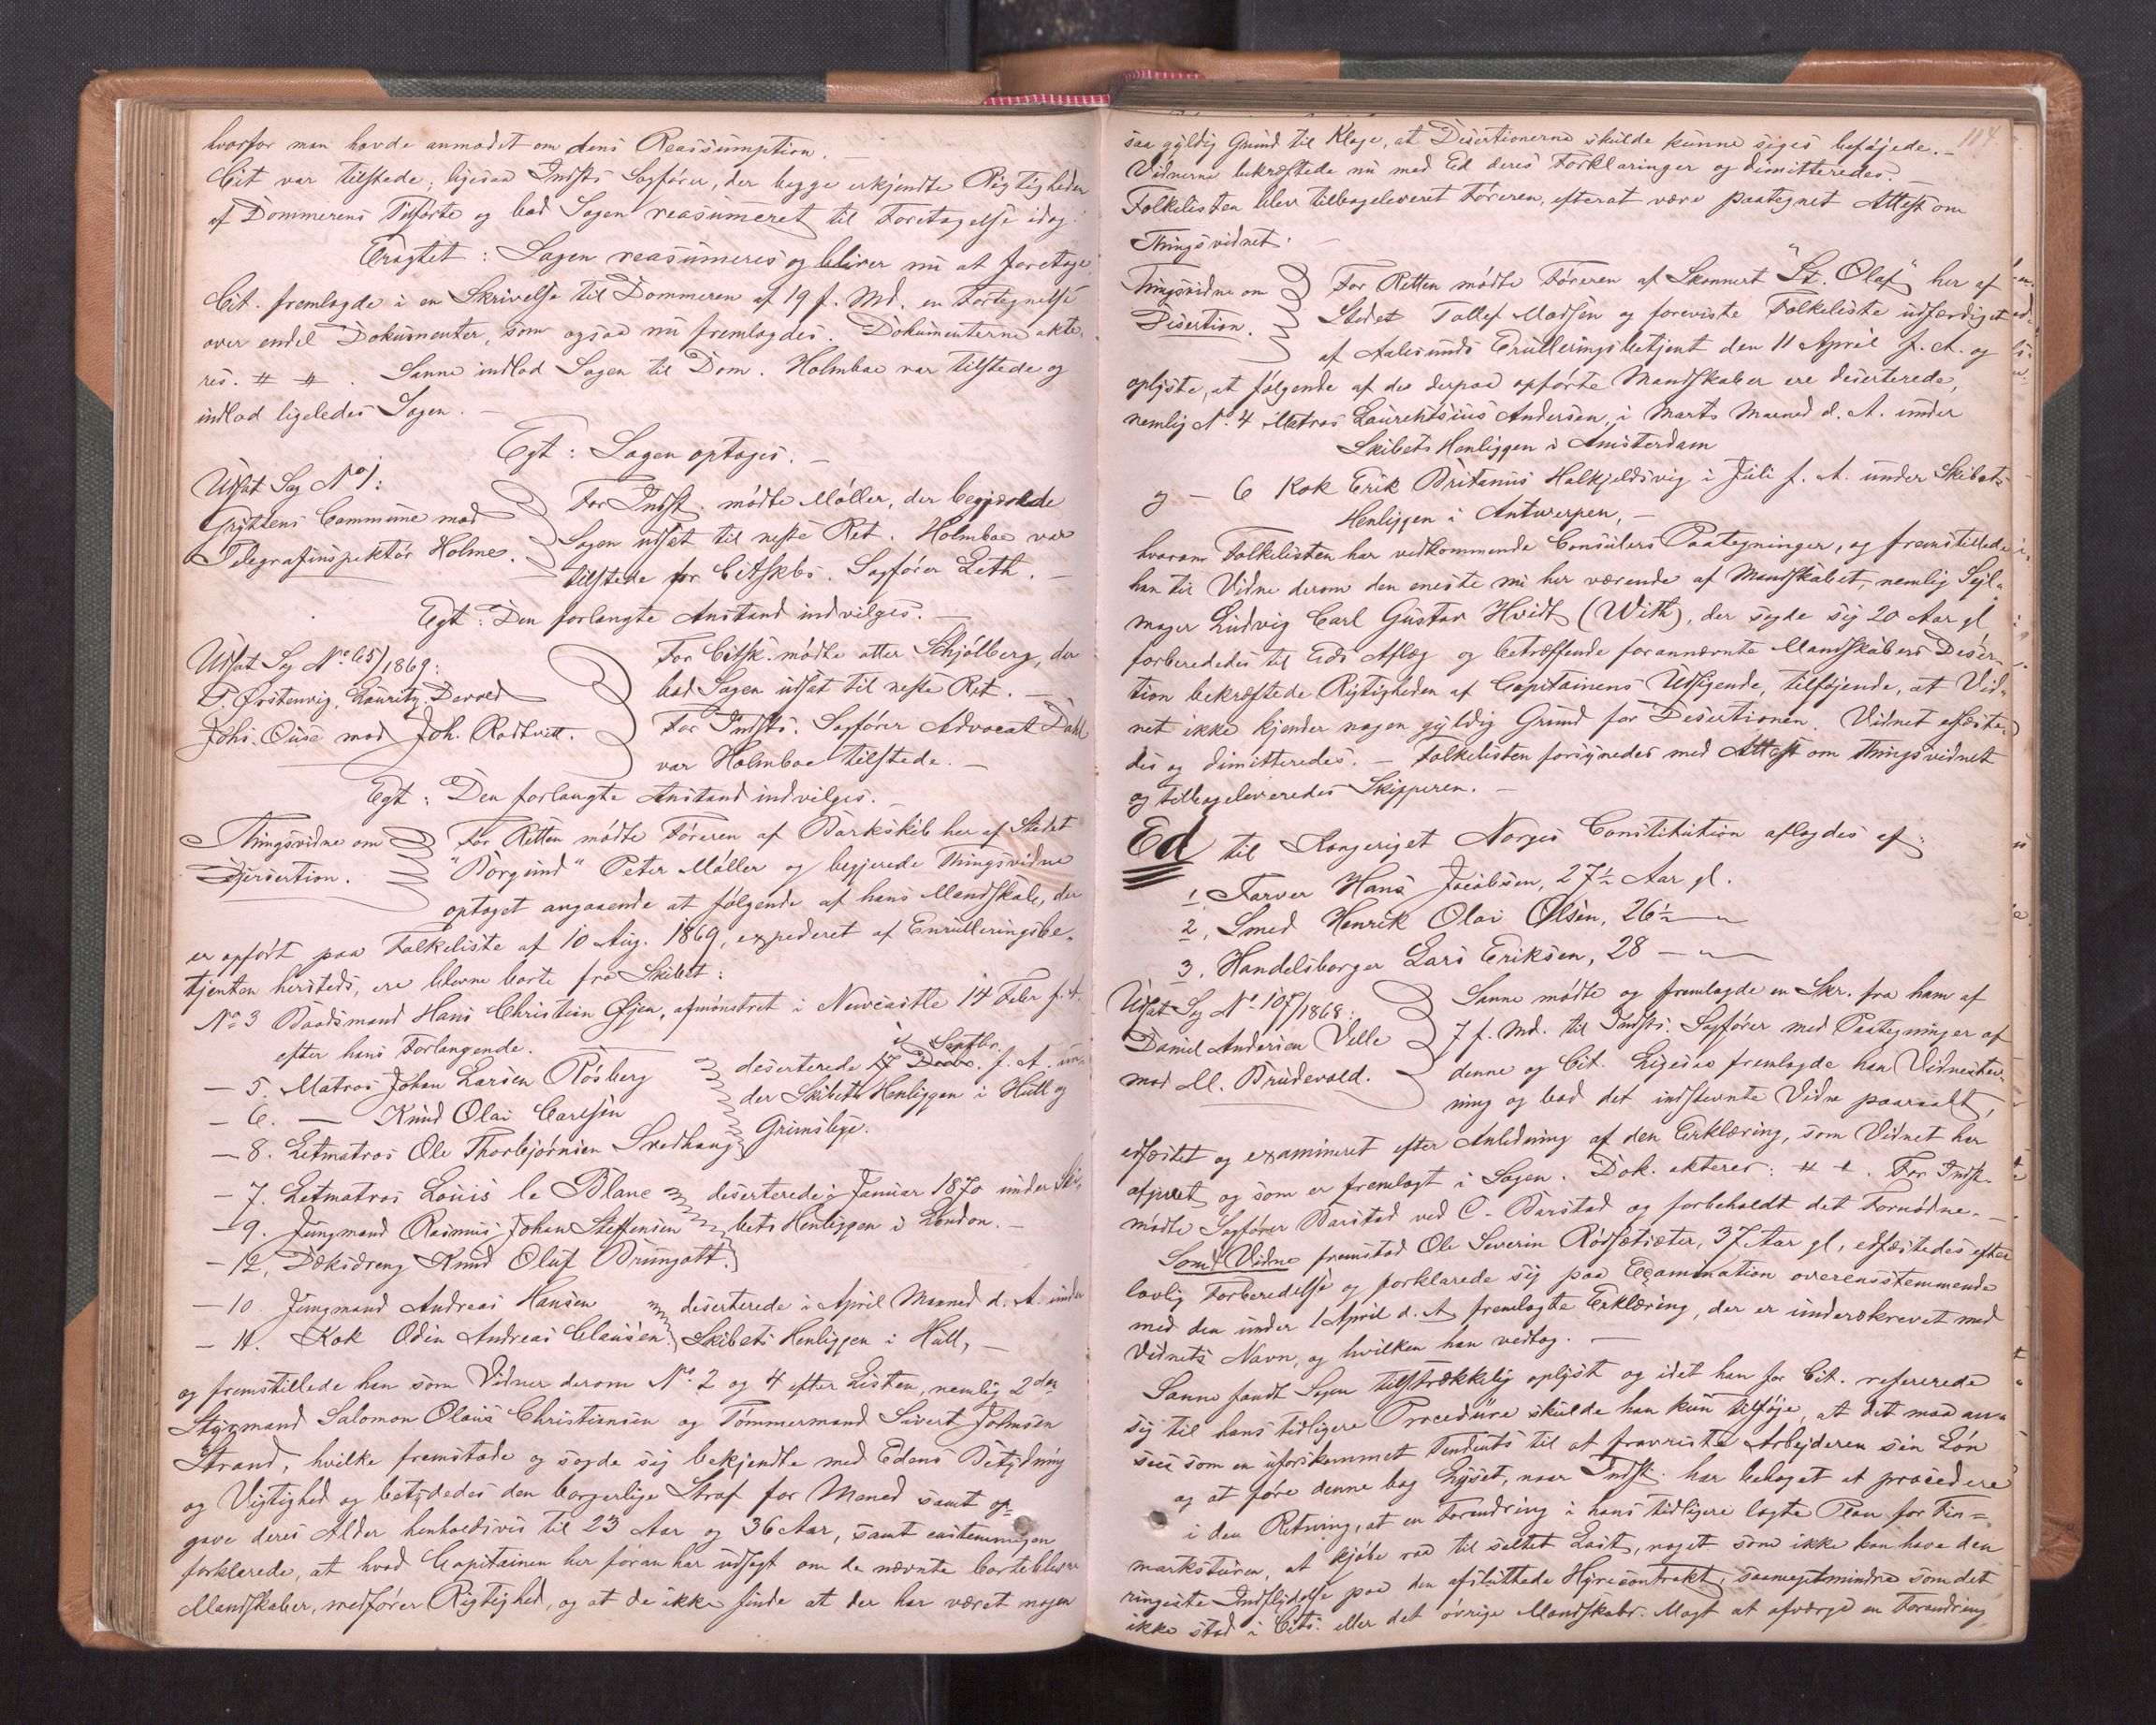 hvorfor man havde anmodet om dens Reassumption. —
Cit var tilstede, ligesaa Indsts Sagfører, der begge erkjendte Rigtigheden
af Dommerens Tilførte og bad Sagen reasumeret til Foretagelse idag.
Eragtet: Sagen reasumeres og bliver nu at foretage.
Cit. fremlagde i en Skrivelse til Dommeren af 19 f. Md. en Fortegnelse
over endel Dokumenter, som ogsaa nu fremlagdes. Dokumenterne akte-
res. # #. Sanne indlod Sagen til Dom. Holmboe var tilstede og
indlod ligeledes Sagen. —
Egt: Sagen optages. —
Udsat Sag No 1:
Gryttens Commune mod
Telegrafinspektør Holme.
For Indst. mødte Møller, der begjærede
Sagen udsat til neste Ret. Holmboe var
tilstede for Citskbs. Sagfører Leth. —
Egt: Den forlangte Anstand indvilges. —
Udsat Sag No 65/1869:
P. Ørstenvig, Lauritz Devold
Johs. Ouse mod Joh. Rodtvitt.
For Citsk. mødte atter Schjølberg, der
bad Sagen udsat til neste Ret. —
For Indsts. Sagfører Advocat Dahl
var Holmboe tilstede. —
Egt: Den forlangte Anstand indvilges. —
Thingsvidne om
Desertion.
For Retten mødte Føreren af Barkskib her af Stedet
"Borgund" Peter Møller og begjerede Thingsvidne
optaget angaaende at følgende af hans Mandskab, der
er opført paa Folkeliste af 10 Aug. 1869, expederet af Enrulleringsbe-
tjenten hersteds, ere blevne borte fra Skibet:
No 3 Baadsmand Hans Christian Øjen, afmønstret i Newcastle 14 Febr f. A.
efter hans Forlangende.
— 5. Matros Johan Larsen Røsberg
— 6. — Knud Olai Carlsen
— 8. Letmatros Ole Thorbjørnsen Svedhaug
deserterede i Septbr. f. A. un-
der Skibets Henliggen i Hull og
Grimsbye.
— 7. Letmatros Louis le Blanc
— 9. Jungmand Rasmus Johan Steffensen
— 12. Dæksdreng Knud Oluf Brungatt.
deserterede i Januar 1870 under Ski-
bets Henliggen i London. —
— 10 Jungmand Andreas Hansen
— 11. Kok Odin Andreas Clausen.
deserterede i April Maaned d. A. under
Skibets Henliggen i Hull, —
og fremstillede han som Vidner derom No 2 og 4 efter Listen, nemlig 2den
Styrmand Salomon Olaus Christiansen og Tømmermand Sivert Johnsen
Strand, hvilke fremstode og sagde sig bekjendte med Edens Betydning
og Vigtighed og betydedes den borgerlige Straf for Mened samt op-
gave deres Alder henholdsvis til 23 Aar og 36 Aar, samt enstemmigen
forklarede, at hvad Capitainen her foran har udsagt om de nævnte borteblevne
Mandskaber, medfører Rigtighed, og at de ikke finde at der har været nogen
114
saa gyldig Grund til Klage, at Desertionerne skulde kunne siges beføjede. —
Vidnerne bekræftede nu med Ed deres Forklaringer og dimitteredes. —
Folkelisten blev tilbageleveret Føreren, efterat være paategnet Attest om
Thingsvidnet. —
Tingsvidne om
Desertion.
For Retten mødte Føreren af Skonnert "St. Olaf" her af
Stedet Tollef Madsen og foreviste Folkeliste udfærdiget
af Aalesunds Enrulleringsbetjent den 11 April f. A. og
oplyste, at følgende af de derpaa opførte Mandskaber ere deserterede,
nemlig No. 4 Matros Laurentsius Andersen, i Marts Maaned d. A. under
Skibets Henliggen i Amsterdam
og — 6 Kok Erik Britanus Halkjeldsvig i Juli f. A. under Skibets
Henliggen i Antwerpen, —
hvorom Folkelisten har vedkommende Consulers Paategninger, og fremstillede
han til Vidne derom den eneste nu her værende af Mandskabet, nemlig Sejl-
mager Ludvig Carl Gustav Hvidt (With), der sagde sig 20 Aar gl
forberededes til Eds Aflæg og betræffende forannævnte Mandskabers Deser-
tion bekræftede Rigtigheden af Capitainens Udsigende, tilføjende, at Vid-
net ikke kjender nogen gyldig Grund for Desertionen. Vidnet edfæste-
des og dimitteredes. — Folkelisten forsynedes med Attest om Thingsvidnet
og tilbageleveredes Skipperen. —
Ed til Kongeriget Norges Constitution aflagdes af:
1. Farver Hans Jacobsen, 27½ Aar gl.
2. Smed Henrik Olai Olsen, 26½ — " —
3. Handelsborger Lars Eriksen, 28 — " —
Udsat Sag No. 107/1868:
Daniel Andersen Velle
mod M. Brudevold.
Sanne mødte og fremlagde en Skr. fra ham af
7 f. Md. til Indsts. Sagfører med Paategninger af
denne og Cit. Ligesaa fremlagde han Vidnestev-
ning og bad det indstevnte Vidne paaraabt,
edfæstet og examineret efter Anledning af den Erklæring, som Vidnet har
afgivet og som er fremlagt i Sagen. Dok. akteres: # #. For Indst.
mødte Sagfører Barstad ved C. Barstad og forbeholdt det Fornødne. —
Som Vidne fremstod Ole Severin Rødsætsæter, 37 Aar gl, edfæstedes efter
lovlig Forberedelse og forklarede sig paa Examination overensstemmende
med den under 1 April d. A fremlagte Erklæring, der er underskrevet med
Vidnets Navn, og hvilken han vedtog. —
Sanne fandt Sagen tilstrækkelig oplyst og idet han for Cit. refererede
sig til hans tidligere Procedure skulde han kun tilføje, at det maa an-
sees som en uforskammet Tendents til at fravriste Arbejderen sin Løn
og at føre denne bag Lyset, naar Indst. har behaget at procedere
i den Retning, at en Forandring i hans tidligere lagte Plan for Fin-
marksturen, at kjøbe raa til saltet Last, noget som ikke kan have den
ringeste Indflydelse paa den afsluttede Hyrecontrakt, saameget mindre som det
ikke stod i Cits. eller det øvrige Mandskabs. Magt at afværge en Forandring